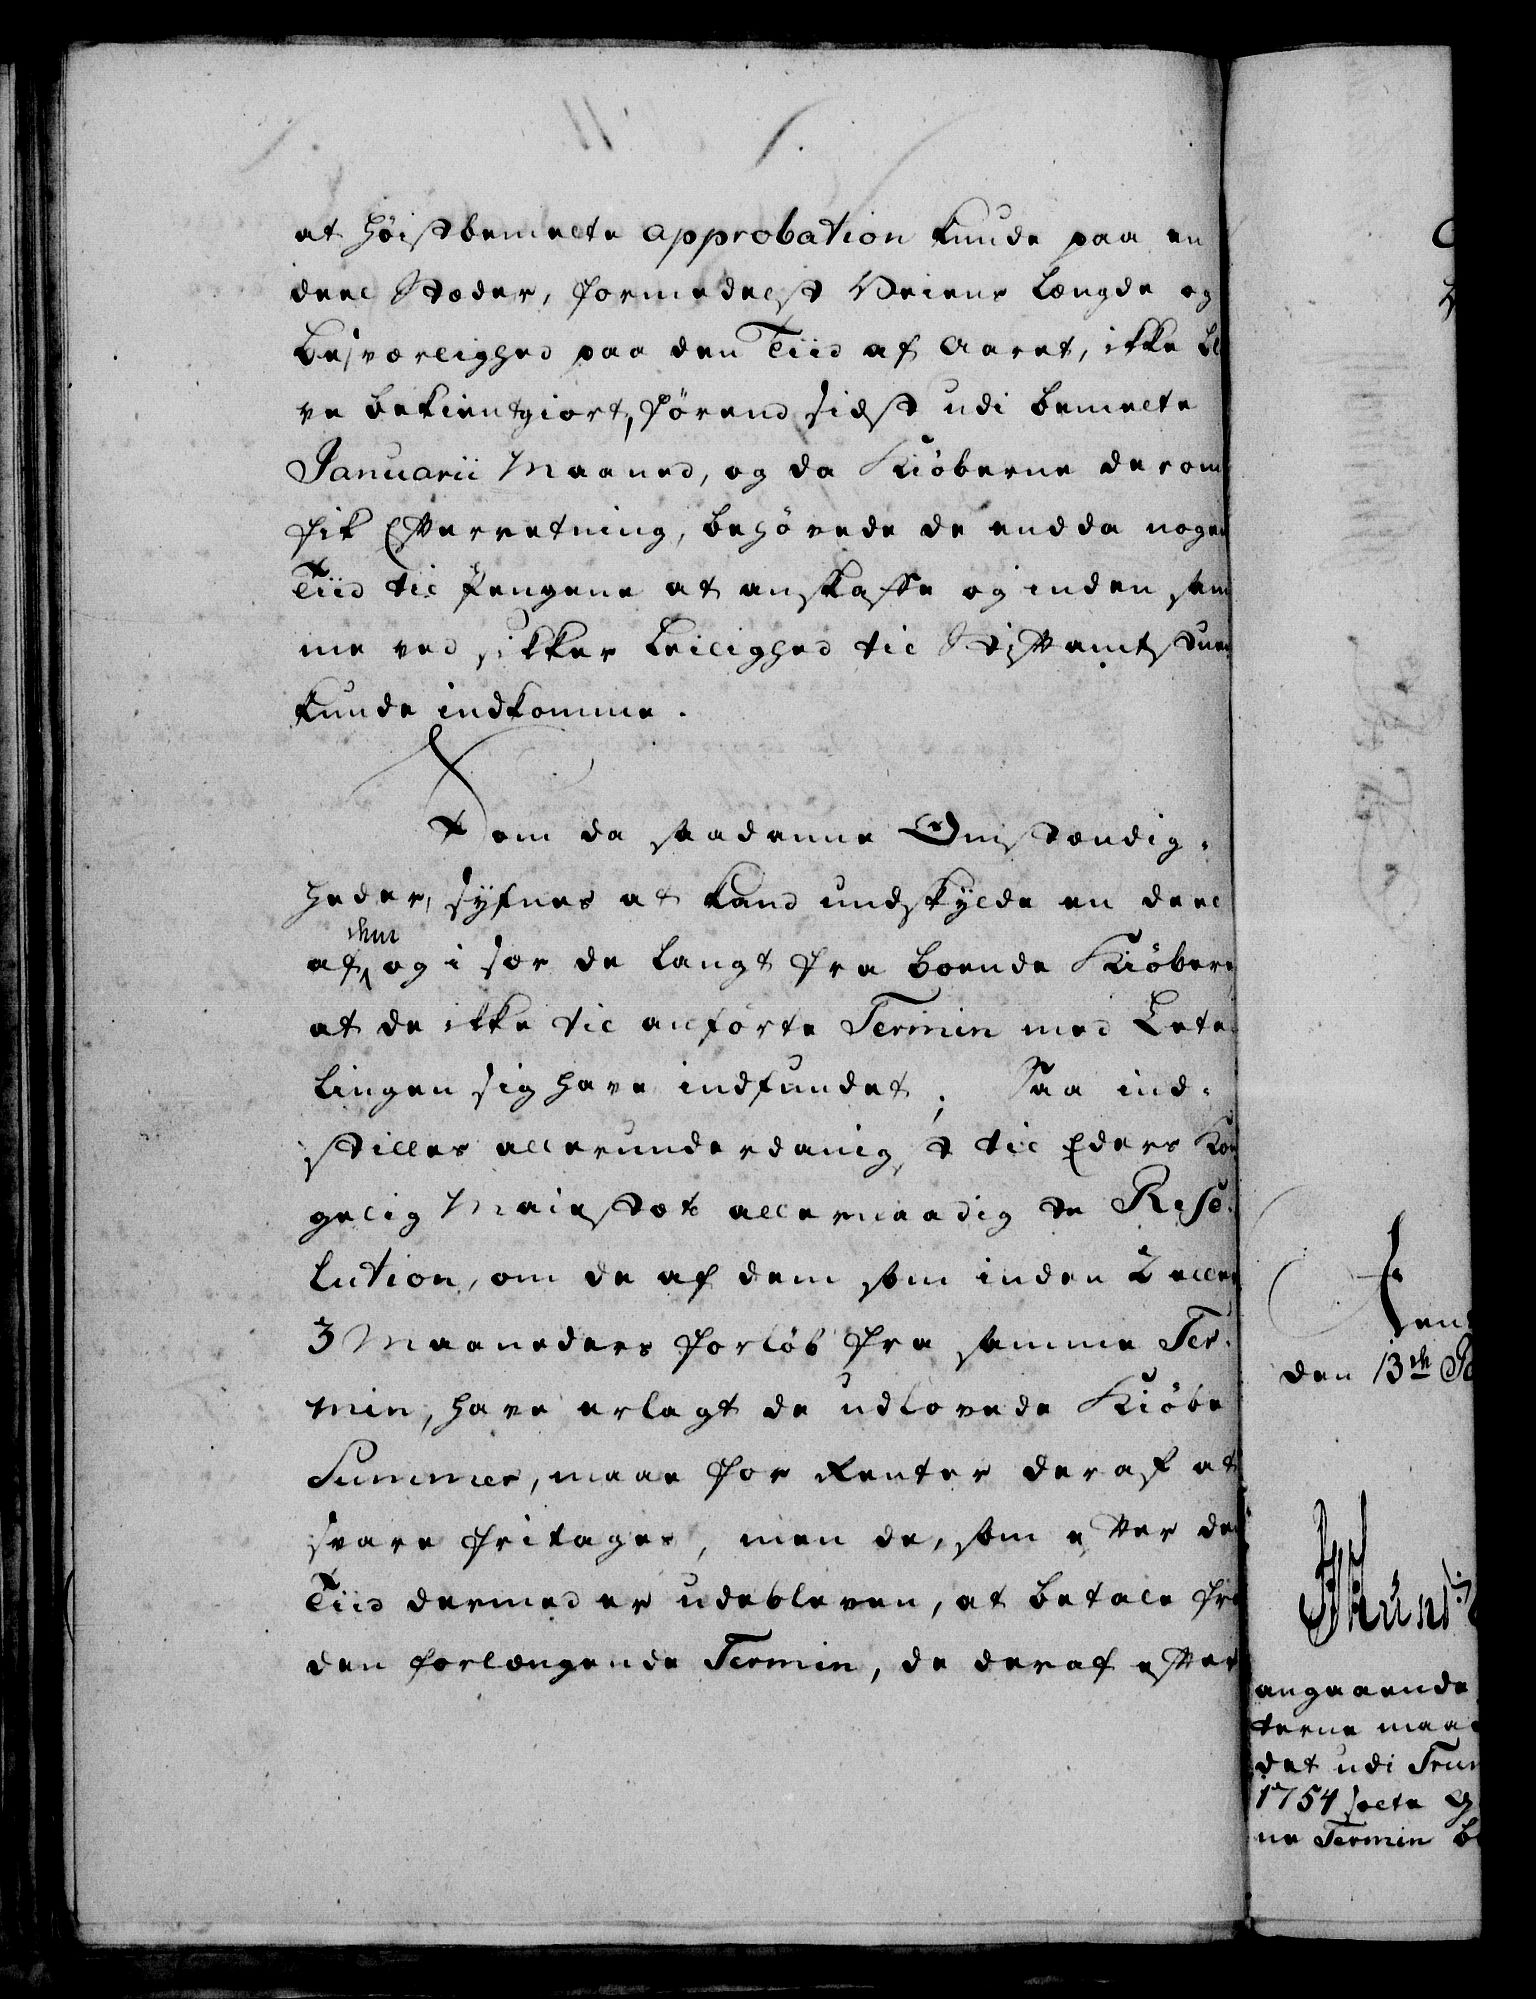 at høistbemelte approbation kunde paa en
deel Stæder, formedelst Veiens Længde og
besværlighed paa den Tiid af Aaret, ikke bl
ve bekientgiort, førend sidst udi bemelte
Januarii Maaned, og da Kiøberne derom
fik Efterretning, behøvede de endda nogen
Tiid til Pengene at anskaffe og inden sam
me ved sikker Leilighed til Stiftamtstuen
kunde indkomme.
Som da saadanne Omstændig-
heder, synes at kand undskylde en deel
dem
af og i sær de langt fra boende Kiøbere
at de ikke til anførte Termin med Beta
lingen sig have indfundet; Saa ind-
stilles allerunderdanigst til Eders Kon
gelig Maiestæts allernaadigste Reso-
lution, om de af dem som inden 2 eller
3 Maaneders forløb fra samme Ter-
min, have erlagt de udlovede Kiøbe
Summer, maae for Renter deraf at
svare fritages, men de, som efter den
Tiid dermed er udebleven, at betale fra
den forlængende Termin, de deraf efter
den 13de
angaaende
terne maae
det udi
1754
ne Termin